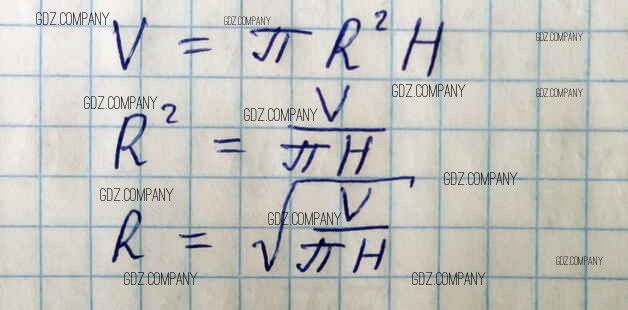 GDZ.COMPANY GDZ.COMPANY GDZ.COMPANY
V = π R² H
GDZ.COMPANY GDZ.COMPANY GDZ.COMPANY GDZ.COMPANY
R² = V / π H
GDZ.COMPANY GDZ.COMPANY GDZ.COMPANY
R = √(V / π H)
GDZ.COMPANY GDZ.COMPANY GDZ.COMPANY